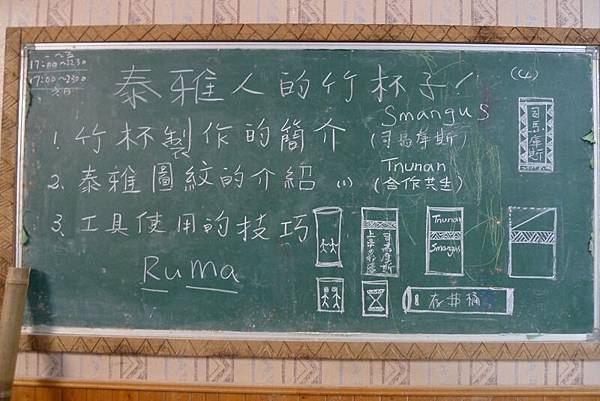 17:00~22:30
17:00~2300
泰雅人的竹杯子!
1. 竹杯製作的簡介
Smangus
(司馬庫斯)
2. 泰雅圖紋的介紹 (1)
Tnunan
(合作共生)
3. 工具使用的技巧
Ruma
司馬庫斯
司馬庫斯
Tnunan
Smangus